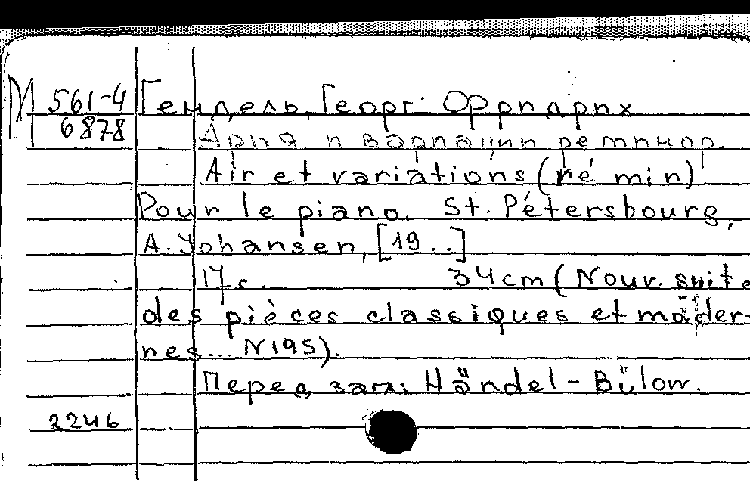 М 561-4 Гендель, Георг Фридрих
6878 Ария и вариации ре минор.
Air et variations (ré min)
Pour le piano. St. Pétersbourg,
A. Johansen, [19..]
17 с. 34 cm (Nouv. suite
des pièces classiques et moder-
nes... N195).
Перед загл: Händel-Bülow.
2246